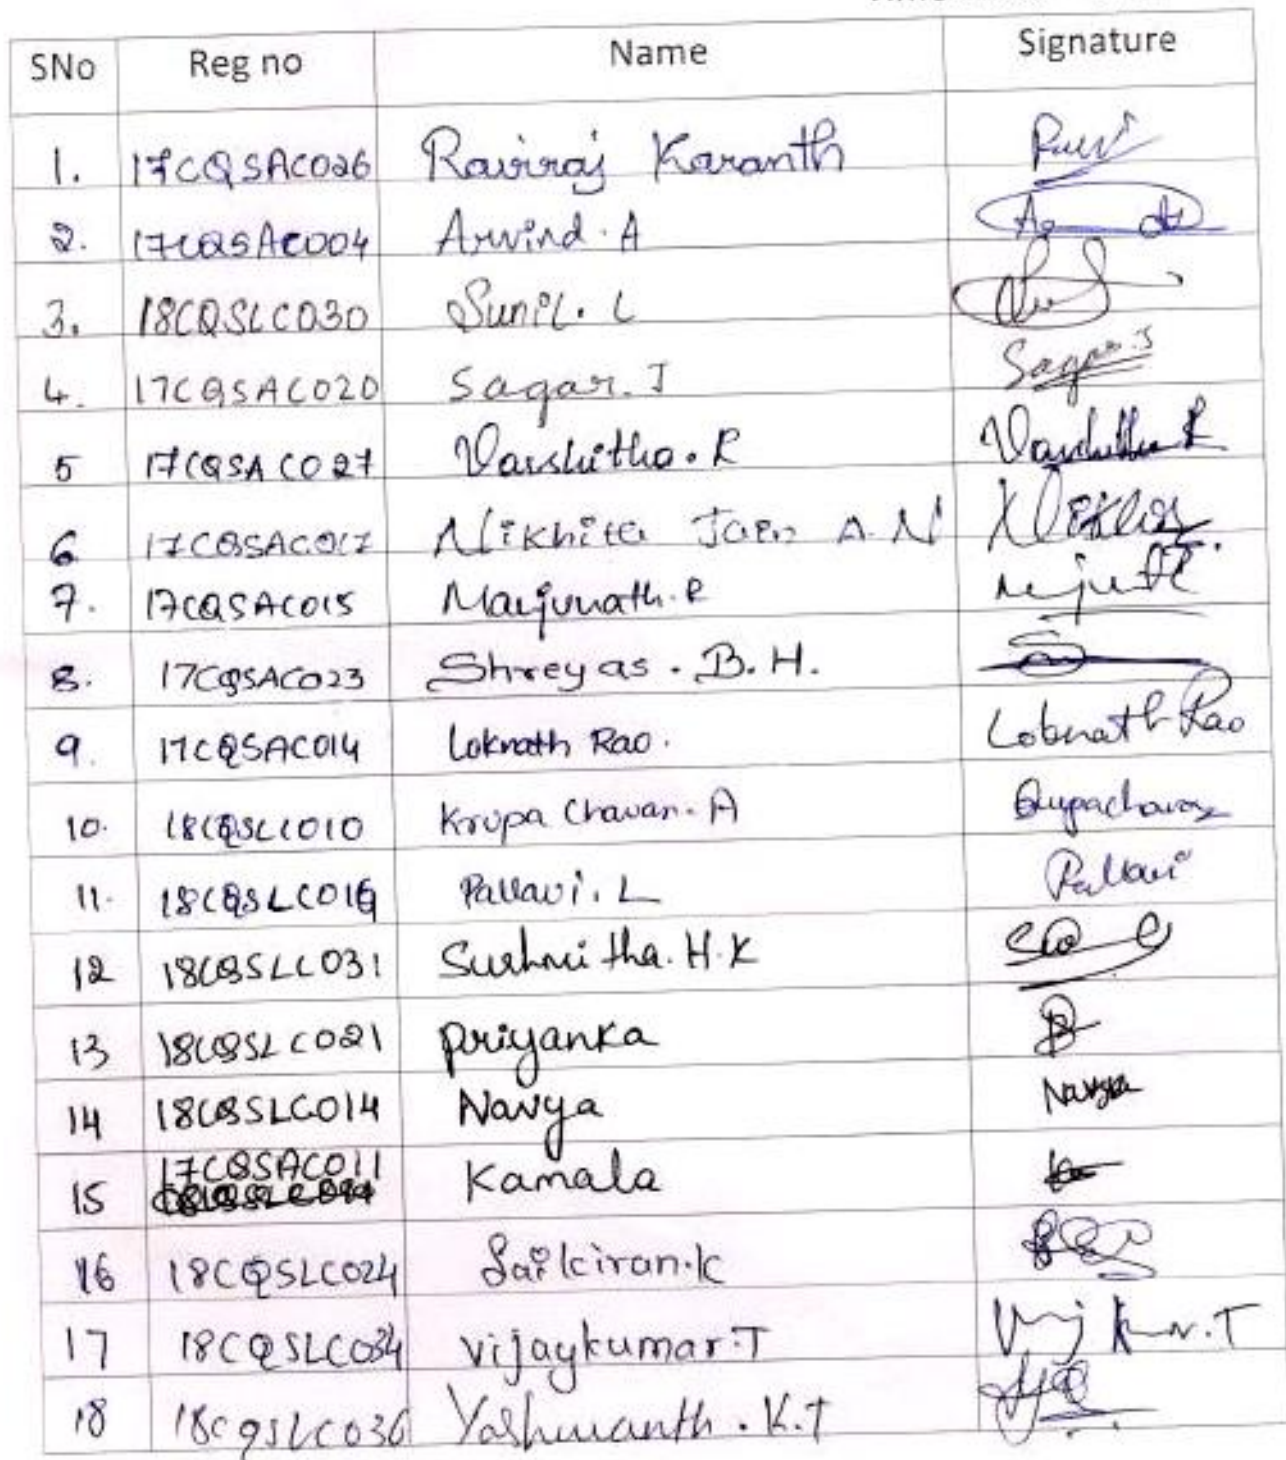 SNo Reg no Name Signature
1. 17CQSAC026 Raviraj Karanth Ravi
2. 17CQSAC004 Arvind. A
3. 18CQSLC030 Sunil. L
4. 17CQSAC020 Sagar. J Sagar. J
5 17CQSAC027 Varshitha. R Varshitha R
6 17CQSAC017 Nikhita Jain A. N
7. 17CQSAC015 Manjunath. R
8. 17CQSAC023 Shreyas. B. H.
9. 17CQSAC014 Loknath Rao. Loknath Rao
10. 18CQSLC010 Krupa Chavan. A Krupachavan
11. 18CQSLC016 Pallavi. L Pallavi
12 18CQSLC031 Sushmitha. H. K
13 18CQSLC021 priyanka
14 18CQSLC014 Navya Navya
15 17CQSAC011 Kamala
16 18CQSLC024 Saikiran. k
17 18CQSLC034 vijaykumar. T
18 18CQSLC036 Yashwanth. K. T